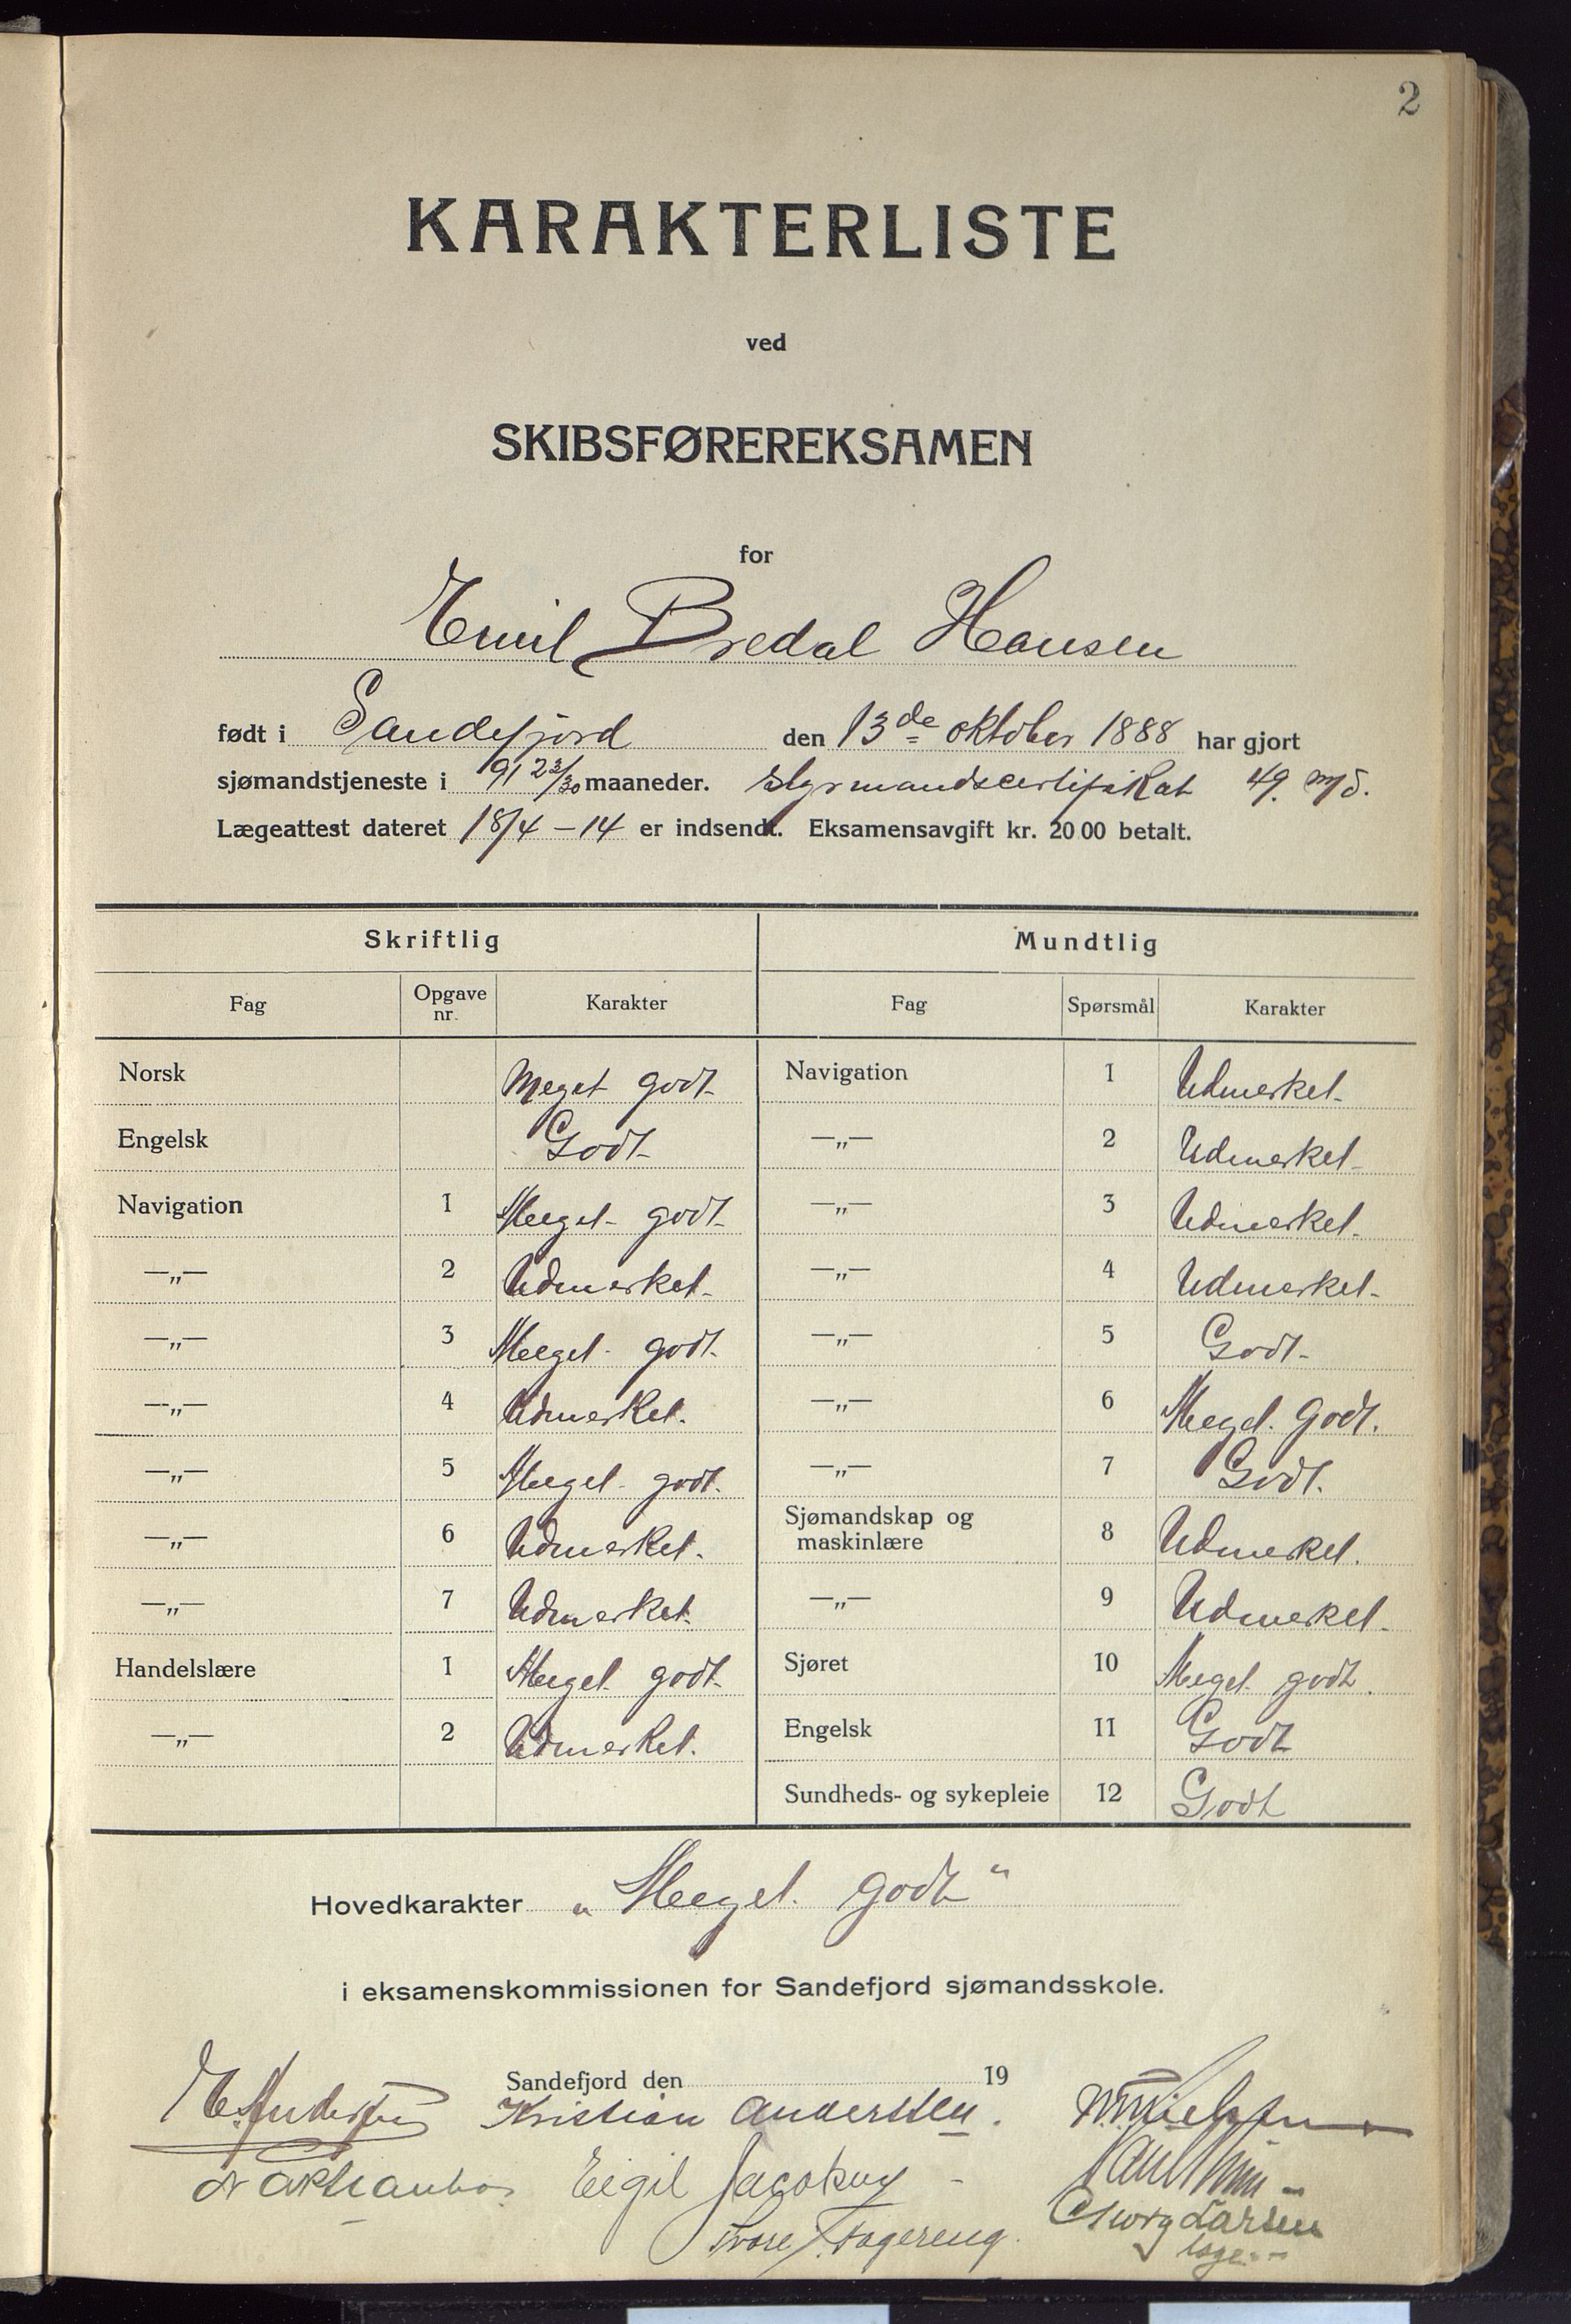 2
KARAKTERLISTE
ved
SKIBSFØREREKSAMEN
for
Emil Bredal Hansen
født i Sandefjord den 13de oktober 1888 har gjort
sjømandstjeneste i 91 23/30 maaneder. Styrmandscertifikat 49. m/5.
Lægeattest dateret 18/4 - 14 er indsendt. Eksamensavgift kr. 20 00 betalt.
Skriftlig Mundtlig
Fag Opgave nr. Karakter Fag Spørsmål Karakter
Norsk Meget godt Navigation 1 Udmerket
Engelsk Godt —„— 2 Udmerket
Navigation 1 Meget godt —„— 3 Udmerket.
—„— 2 Udmerket —„— 4 Udmerket
—„— 3 Meget godt. —„— 5 Godt
—„— 4 Udmerket. —„— 6 Meget Godt.
—„— 5 Meget godt. —„— 7 Godt.
—„— 6 Udmerket. Sjømandskap og maskinlære 8 Udmerket.
—„— 7 Udmerket. —„— 9 Udmerket.
Handelslære 1 Meget godt Sjøret 10 Meget godt.
—„— 2 Udmerket. Engelsk 11 Godt
Sundheds- og sykepleie 12 Godt
Hovedkarakter „Meget godt"
i eksamenskommissionen for Sandefjord sjømandsskole.
Sandefjord den 19
E. Andersen Kristian Anderssen.
Eigil Jacobsen
Georg Larsen
Tvore F. Fagereng